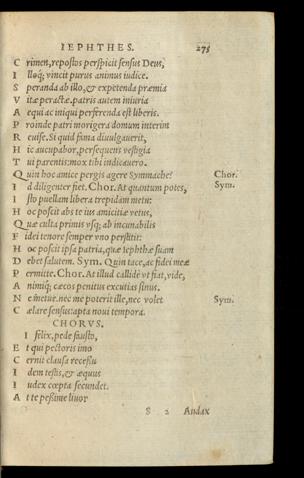 IEPHTHES. 275
C rimen, repostos perspicit sensus Deus,
I lloq; vincit purus animus iudice.
S peranda ab illo, & expetenda præmia
V itæ peractæ. patris autem iniuria
A equi ac iniqui perferenda est liberis.
P roinde patri morigera domum interim
R euise. Si quid fama diuulgauerit,
H ic aucupabor, persequens vestigia
T ui parentis: mox tibi indicauero.
Q uin hoc amice pergis agere Symmache? Chor.
I d diligenter fiet. Chor. At quantum potes, Sym.
I sto puellam libera trepidam metu:
H oc poscit abs te ius amicitiæ vetus,
Q uæ culta primis vsq; ab incunabilis
F idei tenore semper vno perstitit:
H oc poscit ipsa patria, quæ Iephthæ suam
D ebet salutem. Sym. Quin tace, ac fidei meæ
P ermitte. Chor. At illud callidè vt fiat, vide,
A nimiq; cæcos penitus excutias sinus.
N e metue. nec me poterit ille, nec volet Sym.
C ælare sensus capta noui tempora.
CHORVS.
I felix, pede fausto,
E t qui pectoris imo
C ernit clausa recessu
I dem testis, & æquus
I udex cœpta secundet.
A t te pessime liuor
S 2 Audax